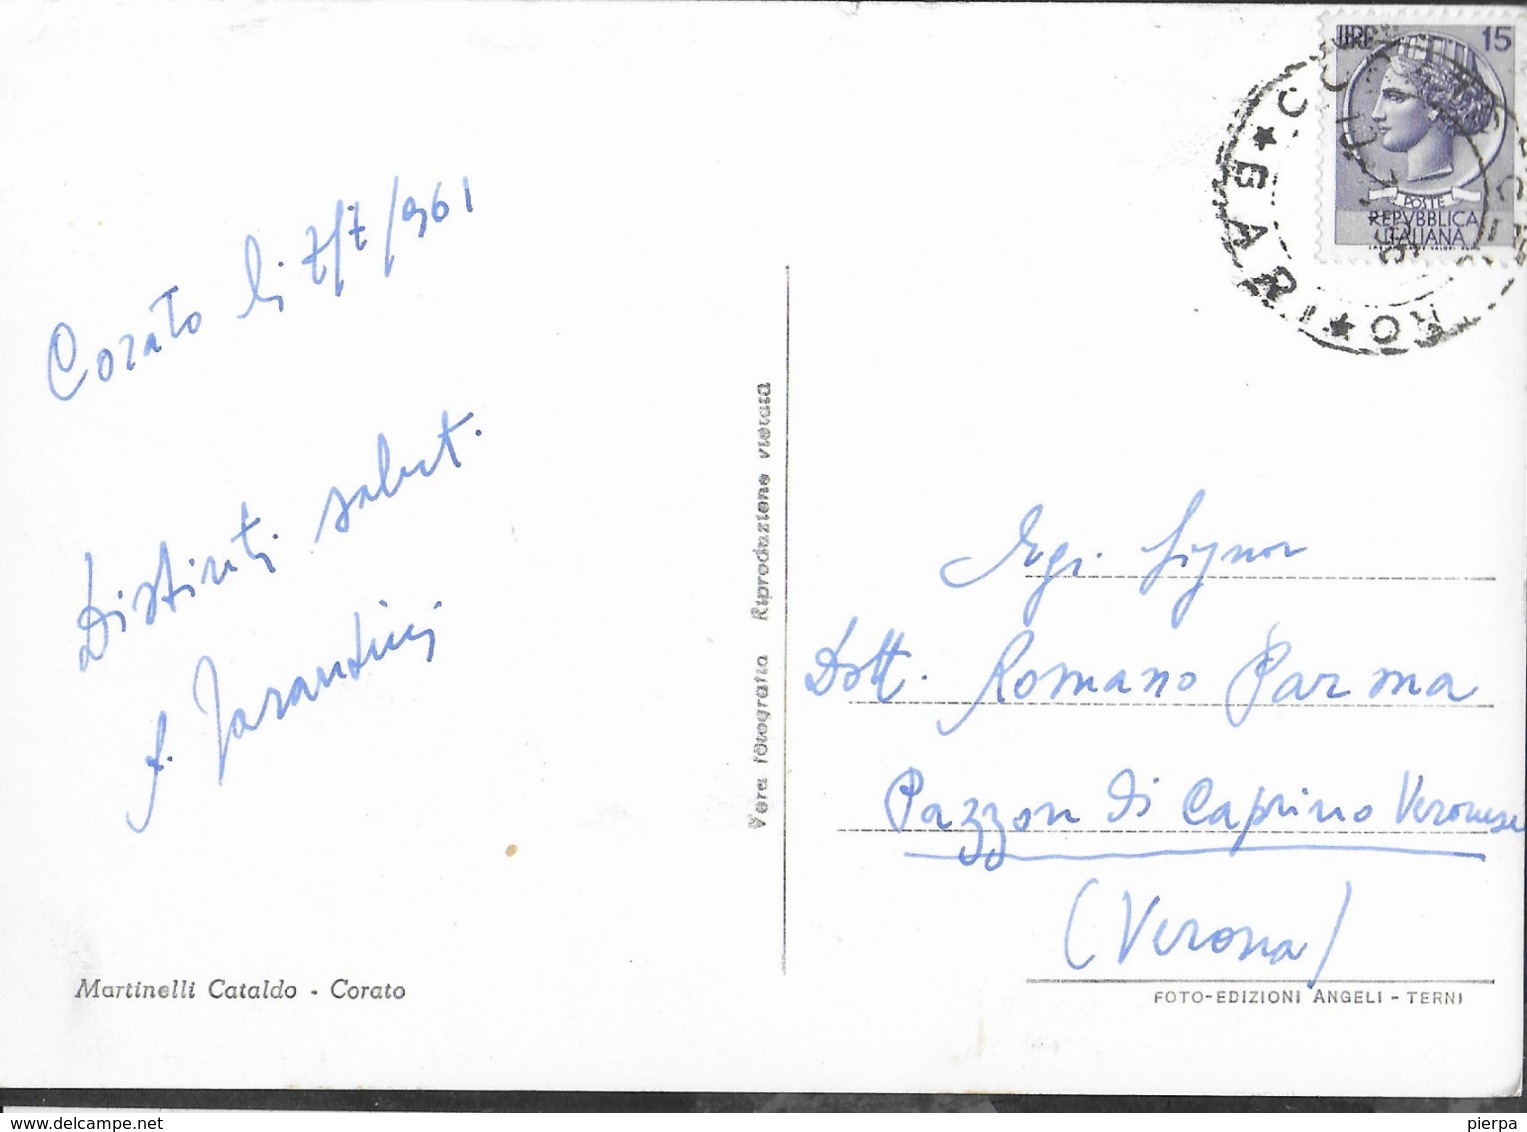 Corato li 7/7/961
Distinti salut.
f. Tarantini
Martinelli Cataldo - Corato
Vera fotografia Riproduzione vietata
LIRE 15
POSTE
REPVBBLICA
ITALIANA
BARI
Egr. Signor
Dott. Romano Parma
Pazzon di Caprino Veronese
(Verona)
FOTO-EDIZIONI ANGELI - TERNI
delcampe.net
pierpa